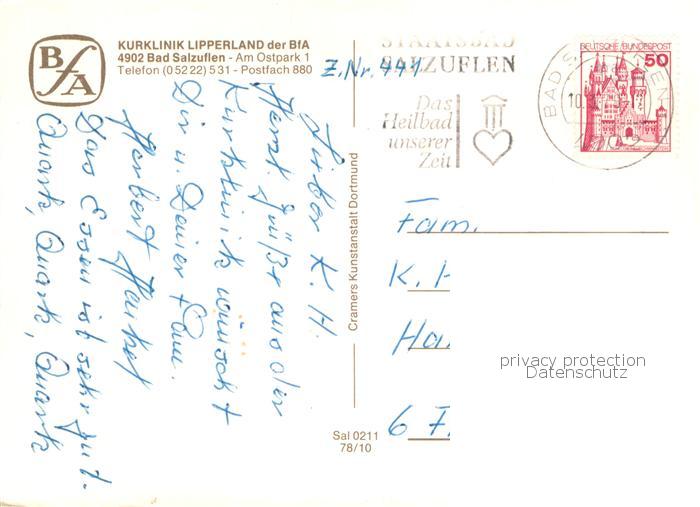 BfA
KURKLINIK LIPPERLAND der BfA
4902 Bad Salzuflen - Am Ostpark 1
Telefon (05222) 531 - Postfach 880
Z.Nr. 441
STAATSBAD
SALZUFLEN
Das
Heilbad
unserer
Zeit
BAD S
10.
DEUTSCHE BUNDESPOST
50
Lieber K. H.
Herzl. Grüße aus der
Kurklinik wünscht
Dir u. Deiner Fam.
Herbert
Das Essen ist sehr gut.
Quark, Quark, Quark
Cramers Kunstanstalt Dortmund
Fam.
K. H
Ha
6 F.
privacy protection
Datenschutz
Sal 0211
78/10